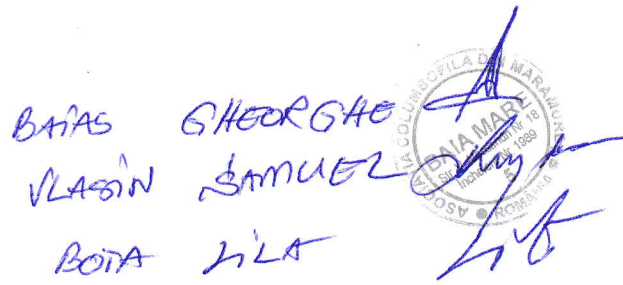 BAIAS GHEORGHE
VLASIN SAMUEL
BOTA LILA
ASOCIATIA COLUMBOFILA DIN MARAMURES
BAIA MARE
Nr 18
Incheiere Nr 1989
5
ROMÂNIA